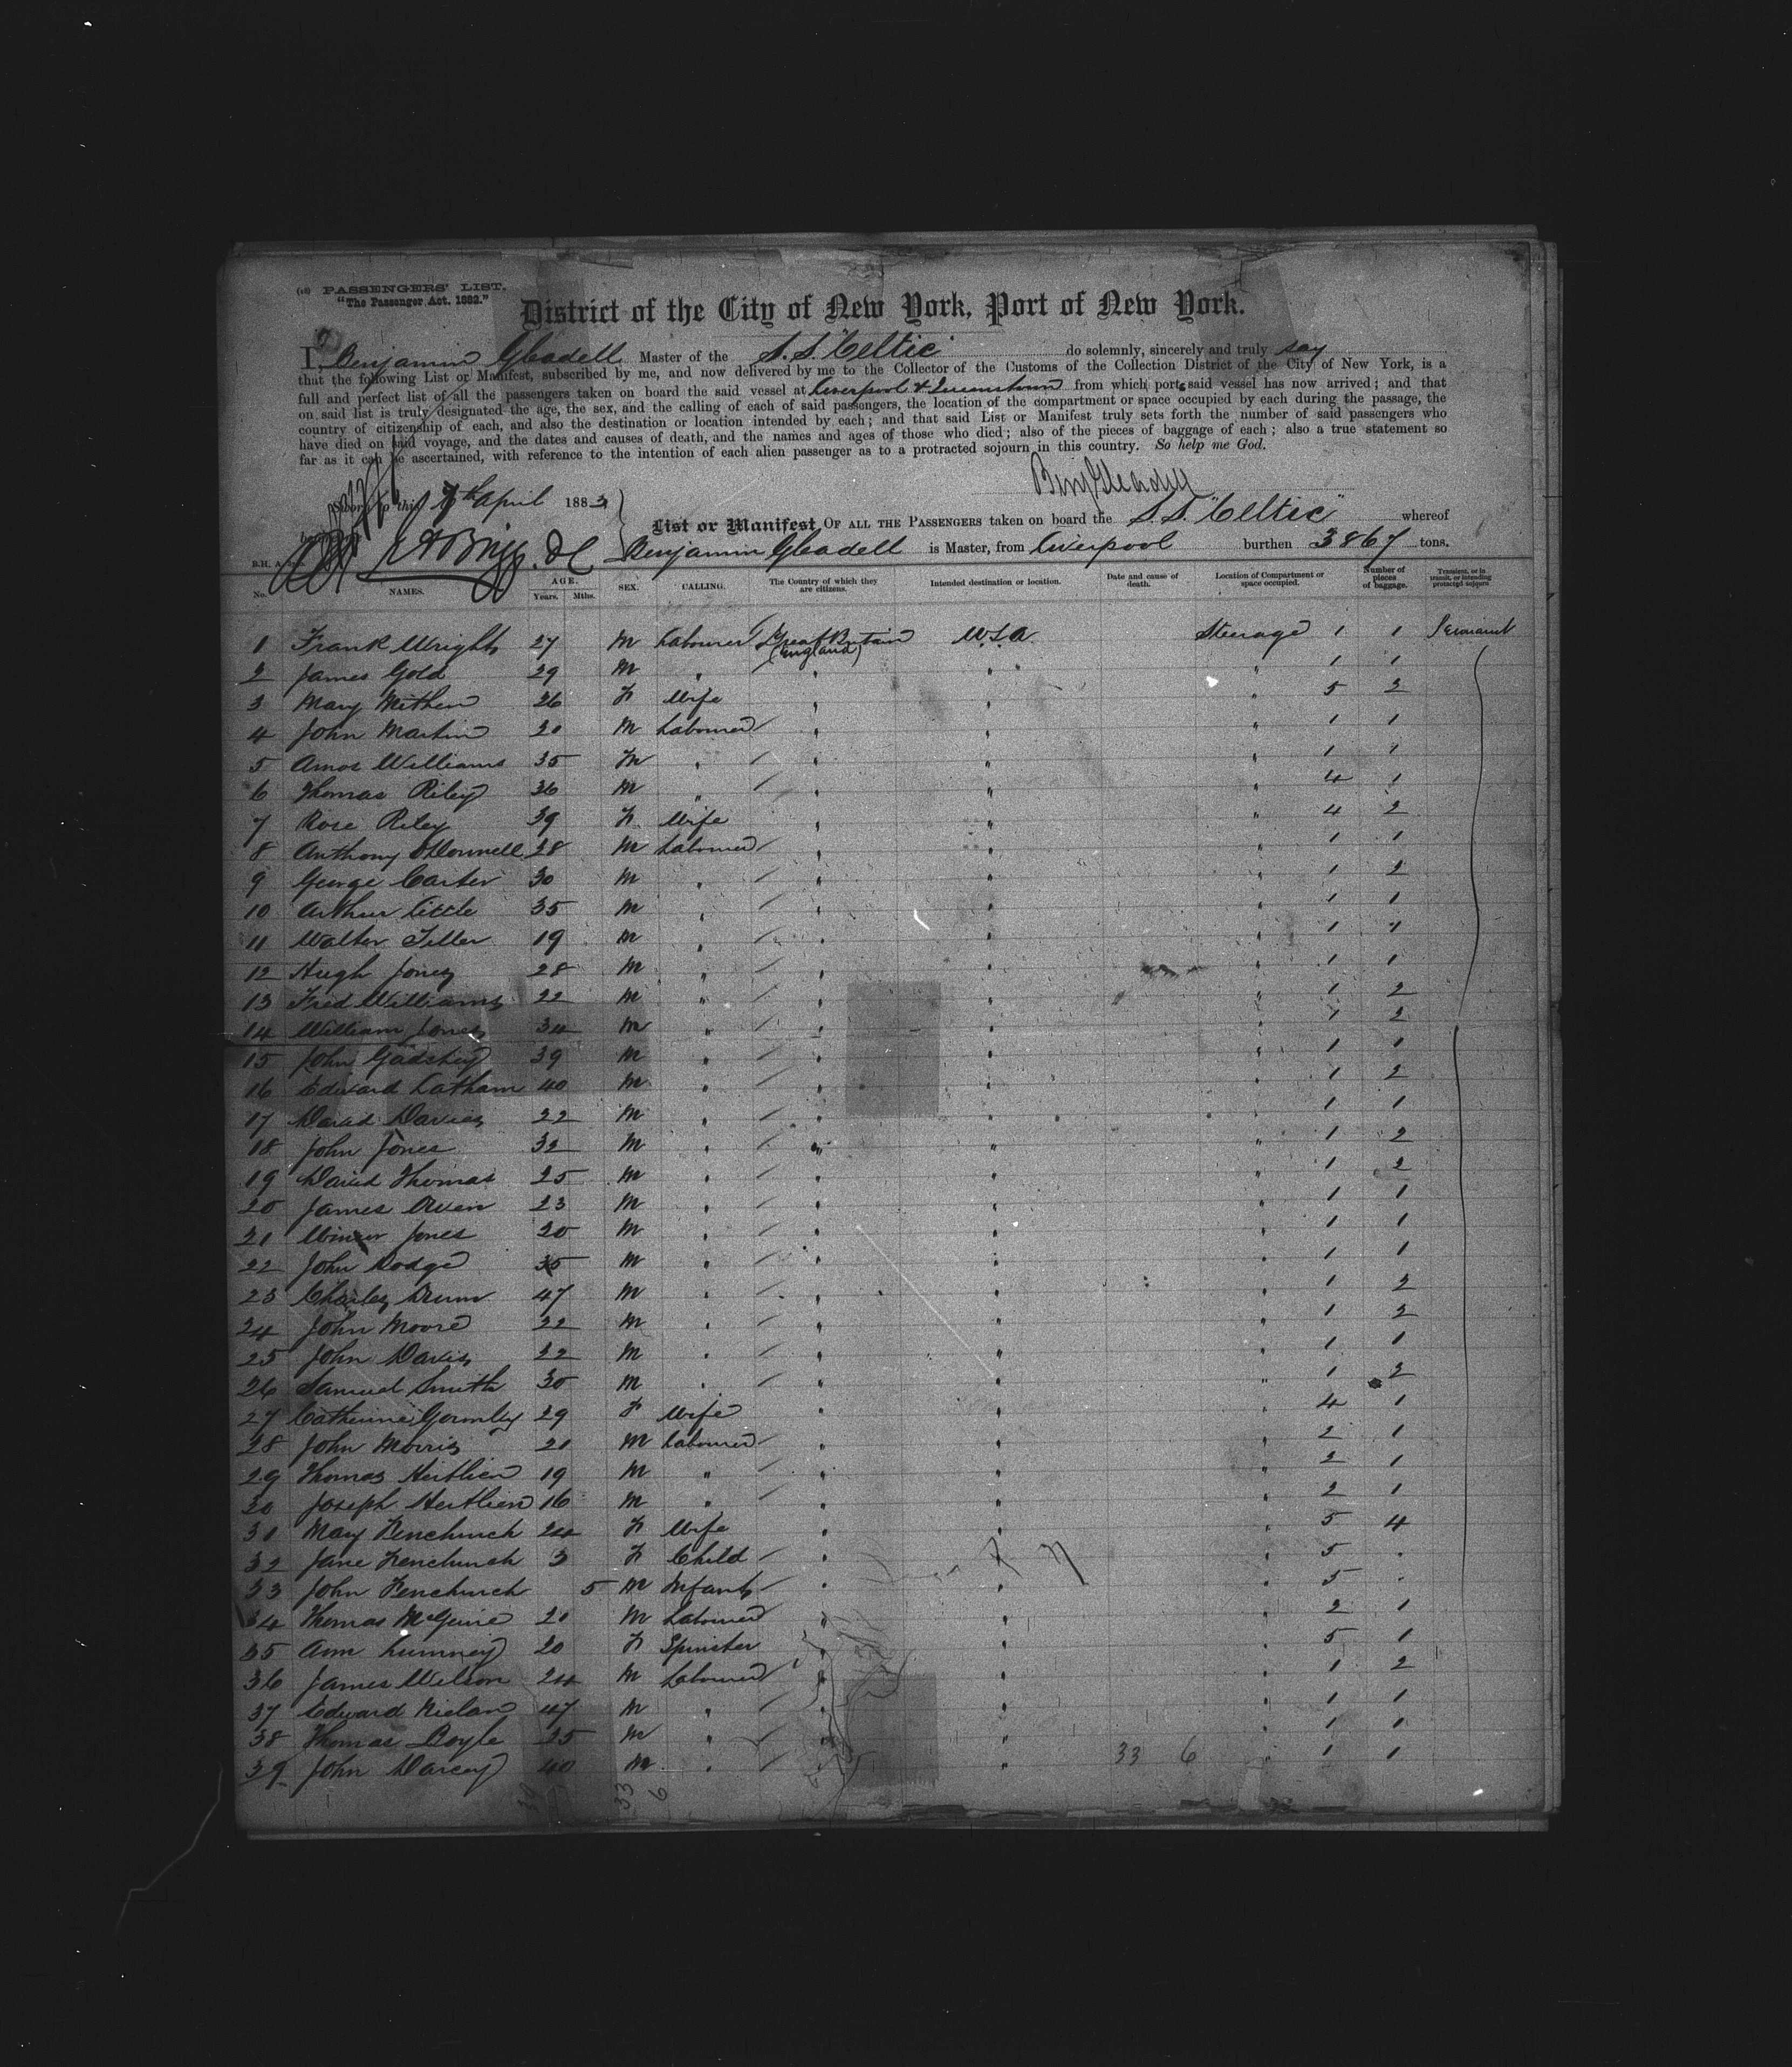 PASSENGERS' LIST.
"The Passenger Act. 1882."
District of the City of New York, Port of New York.
I, Benjamin Gleadell Master of the S.S. "Celtic" do solemnly, sincerely and truly say
that the following List or Manifest, subscribed by me, and now delivered by me to the Collector of the Customs of the Collection District of the City of New York, is a
full and perfect list of all the passengers taken on board the said vessel at Liverpool & Queenstown from which ports said vessel has now arrived; and that
on said list is truly designated the age, the sex, and the calling of each of said passengers, the location of the compartment or space occupied by each during the passage, the
country of citizenship of each, and also the destination or location intended by each; and that said List or Manifest truly sets forth the number of said passengers who
have died on said voyage, and the dates and causes of death, and the names and ages of those who died; also of the pieces of baggage of each; also a true statement so
far as it can be ascertained, with reference to the intention of each alien passenger as to a protracted sojourn in this country. So help me God.
Benj Gleadell
Sworn to this 7th April 1883
List or Manifest OF ALL THE PASSENGERS taken on board the S.S. "Celtic" whereof
Benjamin Gleadell is Master, from Liverpool burthen 3867 tons.
No. NAMES. AGE. Years. Mths. SEX. CALLING. The Country of which they are citizens. Intended destination or location. Date and cause of death. Location of Compartment or space occupied. Number of pieces of baggage. Transient, or in transit, or intending protracted sojourn
1 Frank Wright 27 M Labourer Great Britain (England) U.S.A. Steerage 1 1 Permanent
2 James Gold 29 M " " " " 1 1
3 Mary Mithen 26 F Wife " " " 5 2
4 John Martin 20 M Labourer " " " 1 1
5 Amos Williams 35 M " " " " 1 1
6 Thomas Riley 36 M " " " " 4 1
7 Rose Riley 39 F Wife " " " 4 2
8 Anthony O'Donnell 28 M Labourer " " " 1 1
9 George Carter 30 M " " " " 1 2
10 Arthur Little 35 M " " " " 1 1
11 Walter Tiller 19 M " " " " 1 1
12 Hugh Jones 28 M " " " " 1 1
13 Fred Williams 22 M " " " " 1 2
14 William Jones 34 M " " " " 1 2
15 John Gadsby 39 M " " " " 1 1
16 Edward Latham 40 M " " " " 1 2
17 David Davies 22 M " " " " 1 1
18 John Jones 32 M " " " " 1 2
19 David Thomas 25 M " " " " 1 2
20 James Owen 23 M " " " " 1 1
21 Jones 20 M " " " " 1 1
22 John Dodge 35 M " " " " 1 1
23 Charles Drum 47 M " " " " 1 2
24 John Moore 22 M " " " " 1 2
25 John Davis 22 M " " " " 1 1
26 Samuel Smith 30 M " " " " 1 2
27 Catherine Gormley 29 F Wife " " " 4 1
28 John Morris 21 M Labourer " " " 2 1
29 Thomas Hertlien 19 M " " " " 2 1
30 Joseph Hertlien 16 M " " " " 2 1
31 Mary Fenchurch 24 F Wife " " " 5 4
32 Jane Fenchurch 3 F Child " " " 5 .
33 John Fenchurch 5 M Infant " " " 5 .
34 Thomas McGuire 21 M Labourer " " " 2 1
35 Ann Lumney 20 F Spinster " " " 5 1
36 James Wilson 24 M Labourer " " " 1 2
37 Edward Nielan 47 M " " " " 1 1
38 Thomas Boyle 25 M " " " " 1 1
39 John Darcey 40 M " " 33 6 " 1 1
33 6